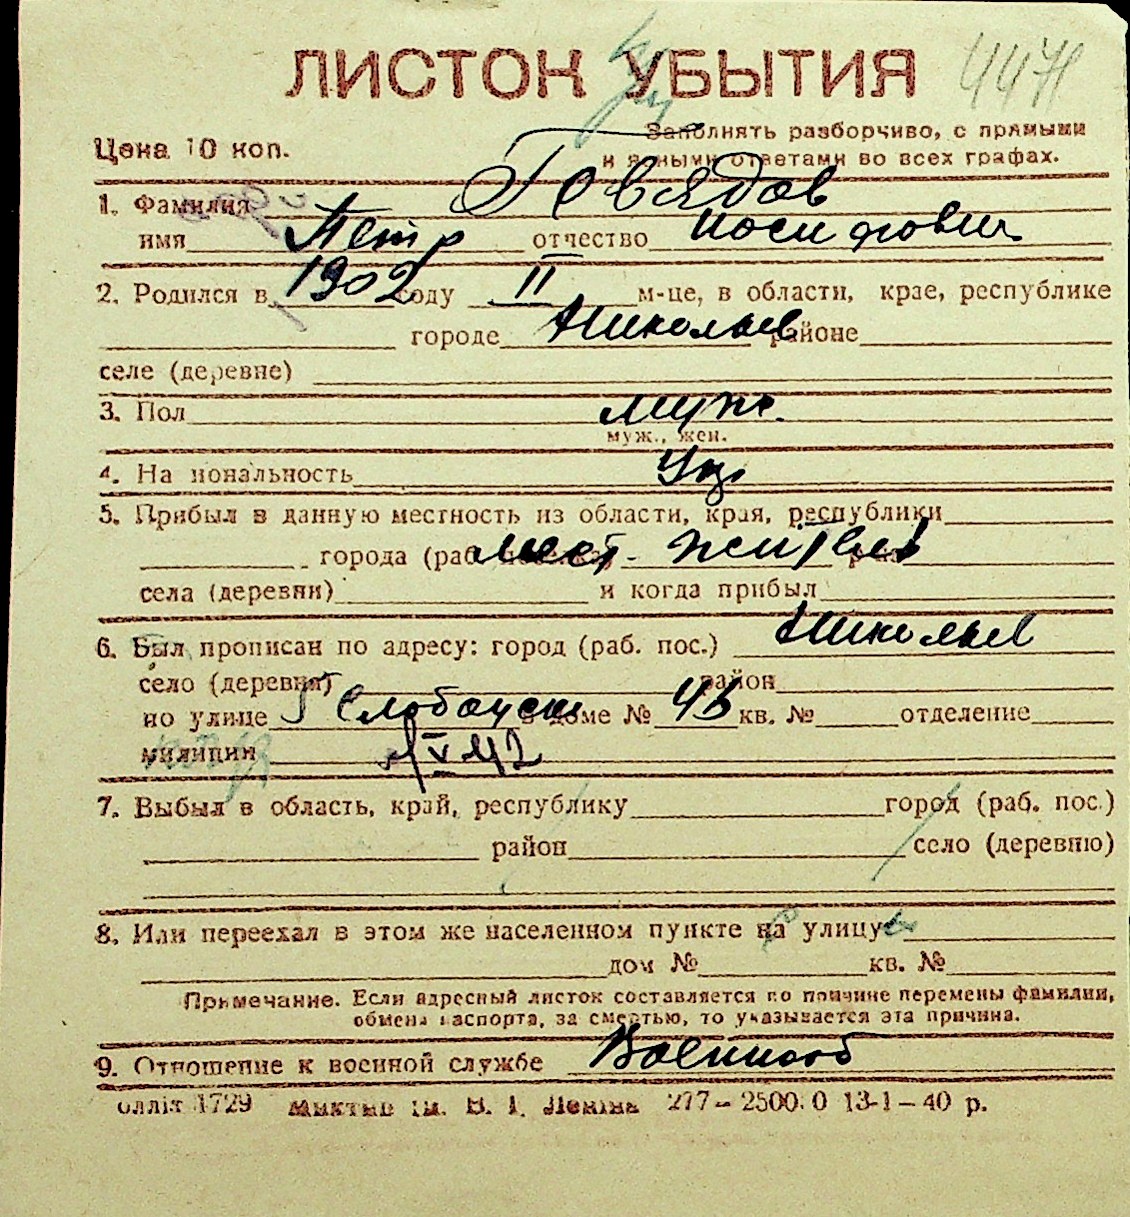 ЛИСТОК УБЫТИЯ
4471
Цена 10 коп.
Заполнять разборчиво, с прямыми
и ясными ответами во всех графах.
1. Фамилия Говядов
имя Петр отчество Иосифович
2. Родился в 1902 году II м-це, в области, крае, республике
городе Николаев районе
селе (деревне)
3. Пол муж.
муж., жен.
4. Национальность
5. Прибыл в данную местность из области, края, республики
города (раб. мест. житель
села (деревни) и когда прибыл
6. Был прописан по адресу: город (раб. пос.) Николаев
село (деревня) район
по улице Слободская в доме № 4б кв. № отделение
милиции
7. Выбыл в область, край, республику город (раб. пос.)
район село (деревню)
8. Или переехал в этом же населенном пункте на улицу
дом № кв. №
Примечание. Если адресный листок составляется по причине перемены фамилии,
обмена паспорта, за смертью, то указывается эта причина.
9. Отношение к военной службе Военнооб
1729 В. І. Леніна 277 – 2500.0 13-1 – 40 р.